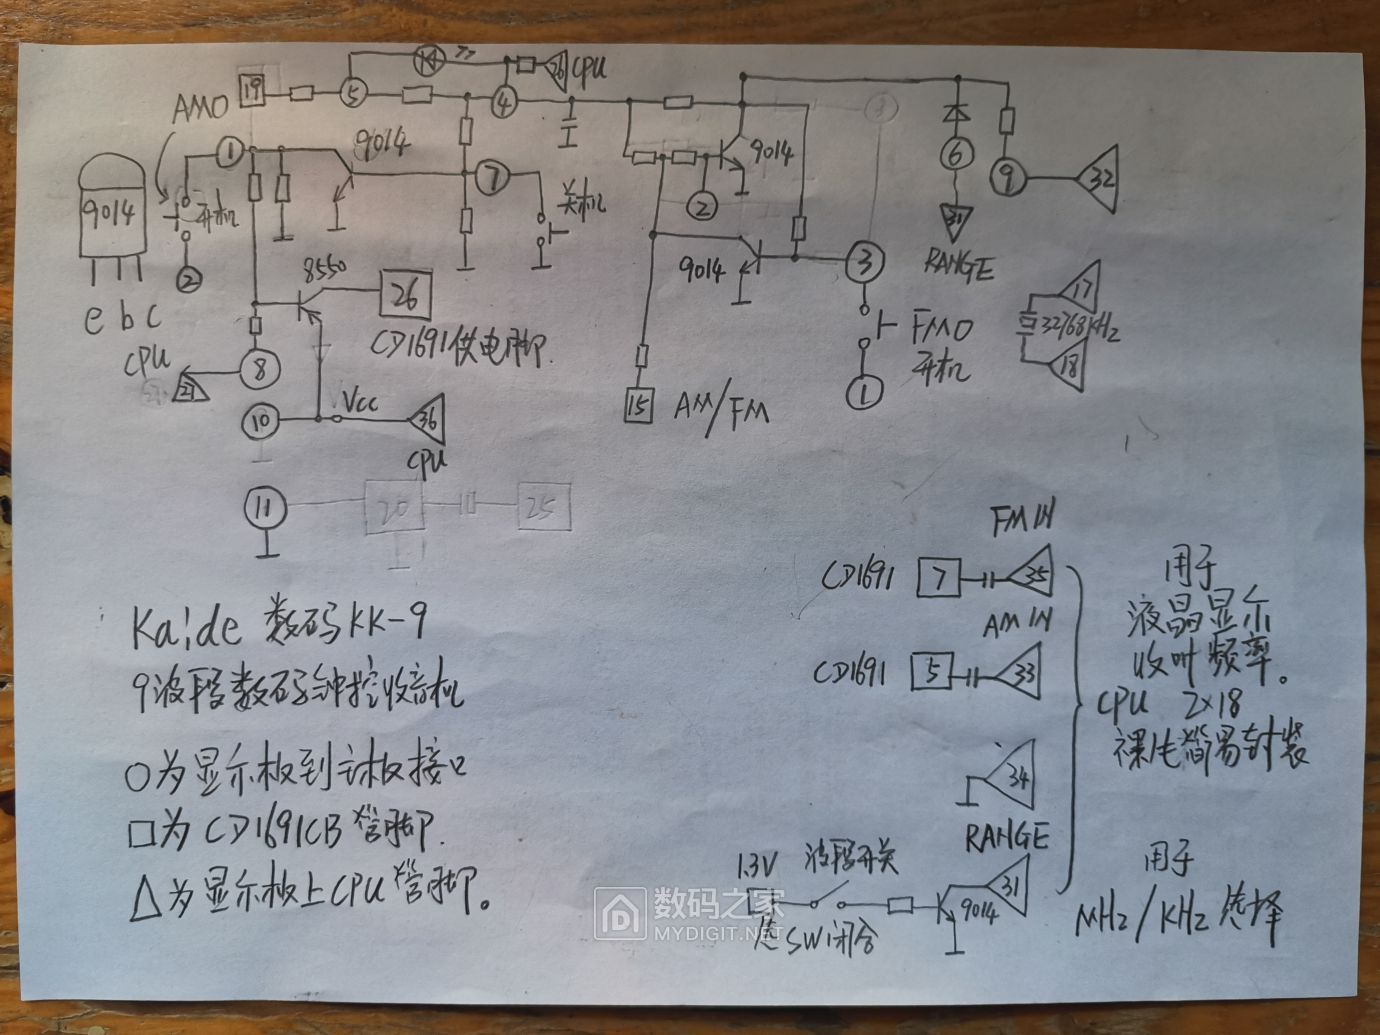 19
5
4
26
CPU
AMO
1
9014
7
关机
开机
2
9014
e b c
8550
26
CD1691供电脚
CPU
27
8
10
Vcc
36
CPU
11
20
25
9014
2
9014
3
3
FMO
开机
1
15
AM/FM
6
31
RANGE
9
32
17
32768KHz
18
Kaide 数码KK-9
9波段数码钟控收音机
○为显示板到主板接口
□为CD1691CB管脚.
△为显示板上CPU管脚。
FMIN
CD1691 7 35
AMIN
CD1691 5 33
34
RANGE
1.3V 波段开关
31
9014
SW闭合
用于
液晶显示
收听频率。
CPU 2×18
裸片简易封装
用于
MHz/KHz选择
数码之家
MYDIGIT.NET